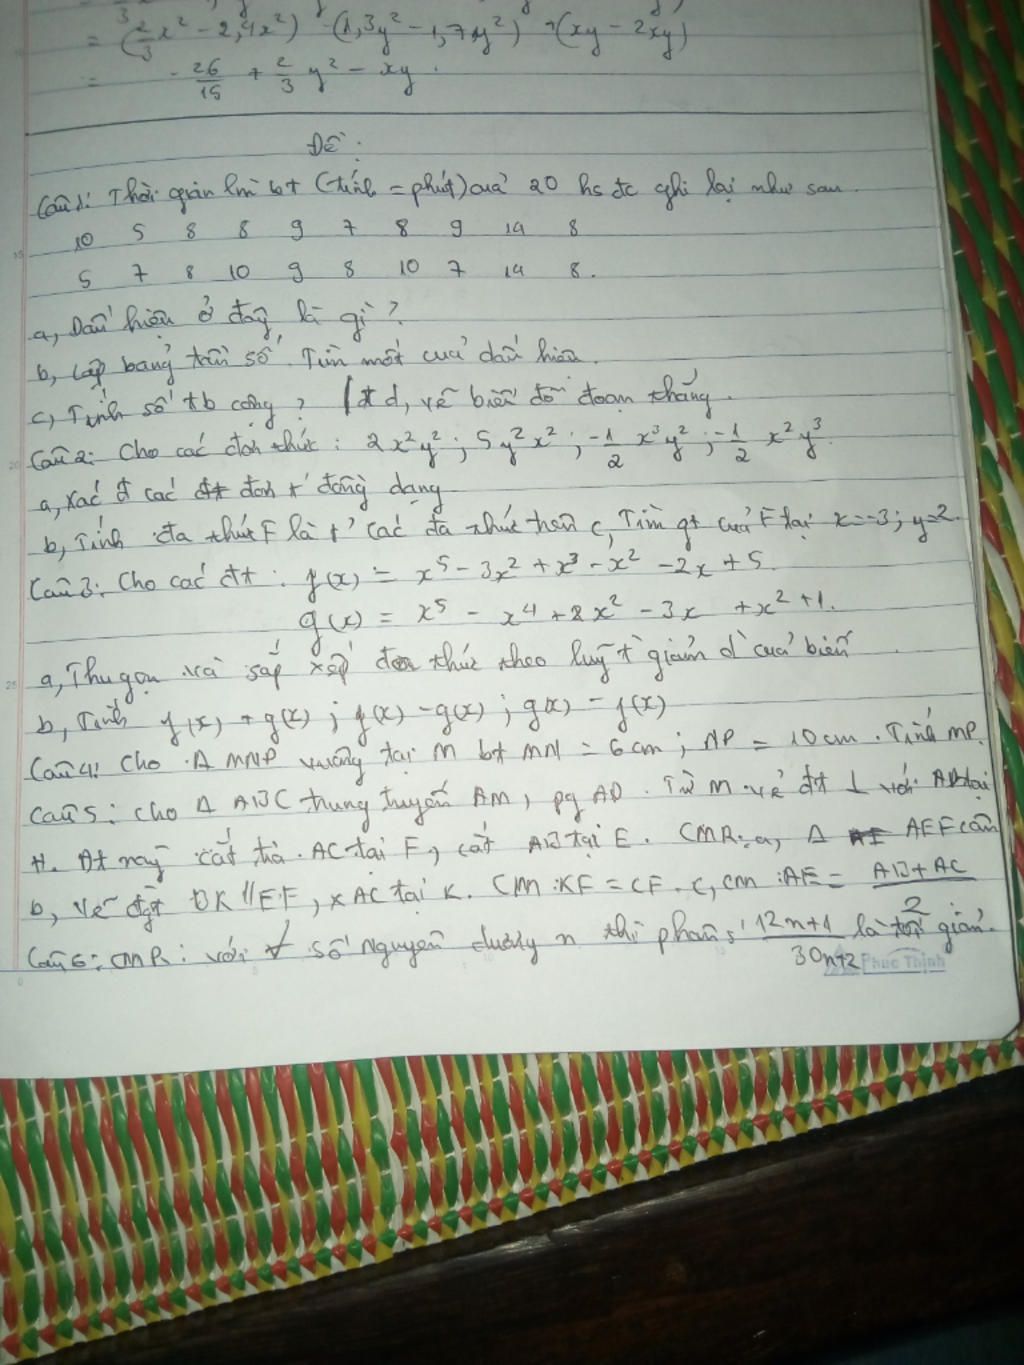 = (2/3 x² - 2,4x²) - (1,3y² - 1,7y²) + (xy - 2xy)
= -26/15 + 2/3 y² - xy.
Đề:
Câu 1: Thời gian lm bt (tính = phút) của 20 hs đc ghi lại như sau.
10 5 8 8 9 7 8 9 14 8
5 7 8 10 9 8 10 7 14 8.
a, Dấu hiệu ở đây là gì?
b, Lập bảng tần số. Tìm mốt của dấu hiệu.
c, Tính số tb cộng? d, vẽ biểu đồ đoạn thẳng.
Câu 2: Cho các đơn thức: 2x²y²; 5y²x²; -1/2 x³y²; -1/2 x²y³.
a, Xác đ các đơn t' đồng dạng
b, Tính đa thức F là t' các đa thức trên c, Tìm gt của F tại x=-3; y=2.
Câu 3: Cho các đt: f(x) = x⁵ - 3x² + x³ - x² - 2x + 5.
g(x) = x⁵ - x⁴ + 2x² - 3x + x² + 1.
a, Thu gọn và sắp xếp đa thức theo luỹ t' giảm d' của biến
b, Tính f(x) + g(x); f(x) - g(x); g(x) - f(x)
Câu 4: Cho Δ MNP vuông tại M bt MN = 6cm; NP = 10cm. Tính MP.
Câu 5: cho Δ ABC trung tuyến AM, pg AD. Từ M vẽ đt ⊥ với AD tại
H. Đt này cắt tia AC tại F, cắt AB tại E. CMR: a, Δ AEF cân
b, Vẽ đgt BK // EF, x AC tại K. CM: KF = CF. c, cm: AE = AB+AC/2
Câu 6: CMR: với ∀ số nguyên dương n thì phân s' 12n+1/30n+2 là tối giản.
Phúc Thịnh